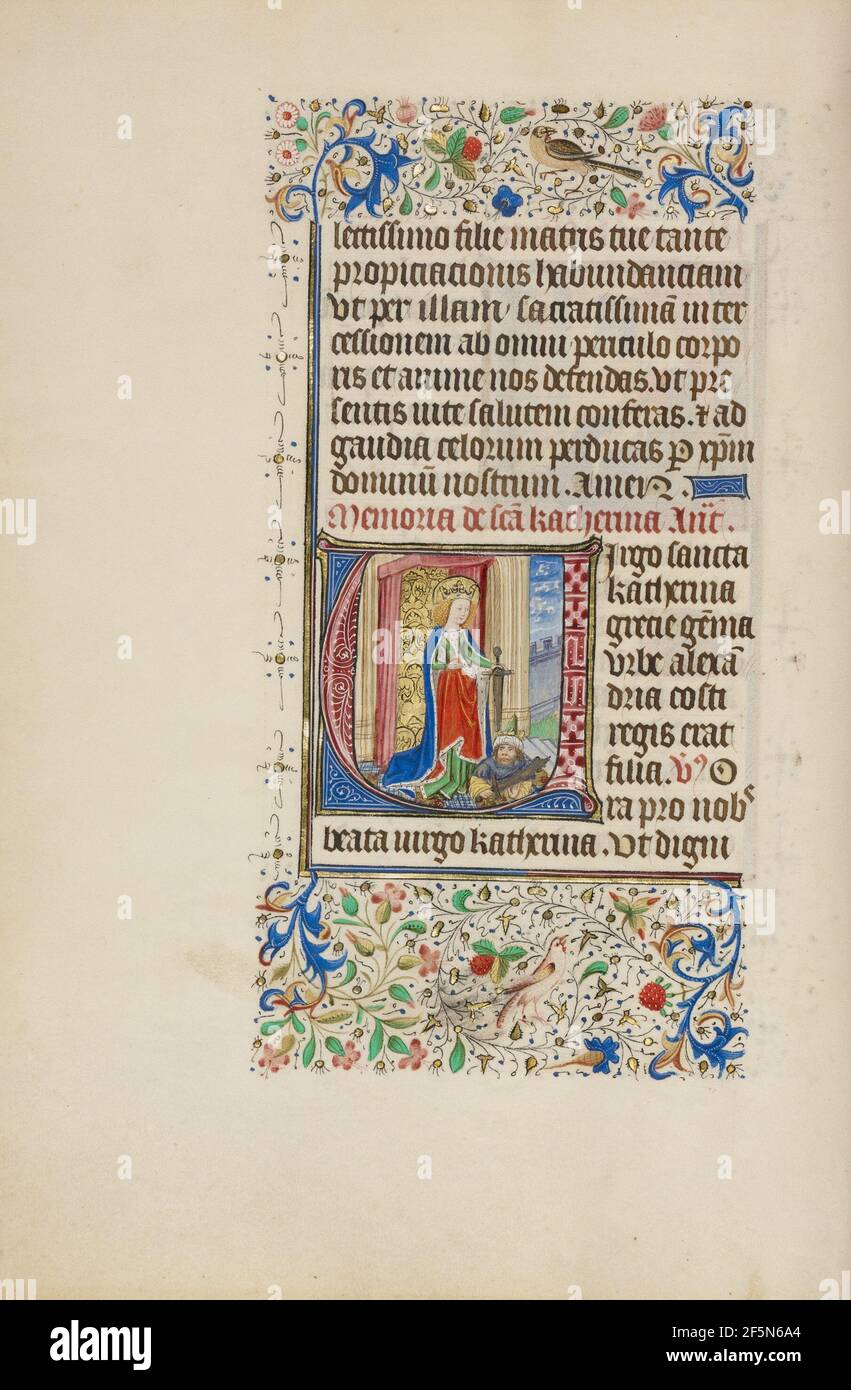 lectissimo filie matris tue tante
propiciacionis habundanciam
vt per illam sacratissimā inter
cessionem ab omni periculo corpo
ris et anime nos defendas. vt pre
sentis uite salutem conferas. ⁊ ad
gaudia celorum perducas ꝑ xp̄m
dominū nostrum. Amen.
Memoria de sc̄a katherina Ant̄.
Virgo sancta
katherina
grecie gēma
vrbe alexā
dria costi
regis erat
filia. V̷ O
ra pro nobˢ
beata uirgo katherina. Vt digni
alamy
Image ID: 2F5N6A4
www.alamy.com